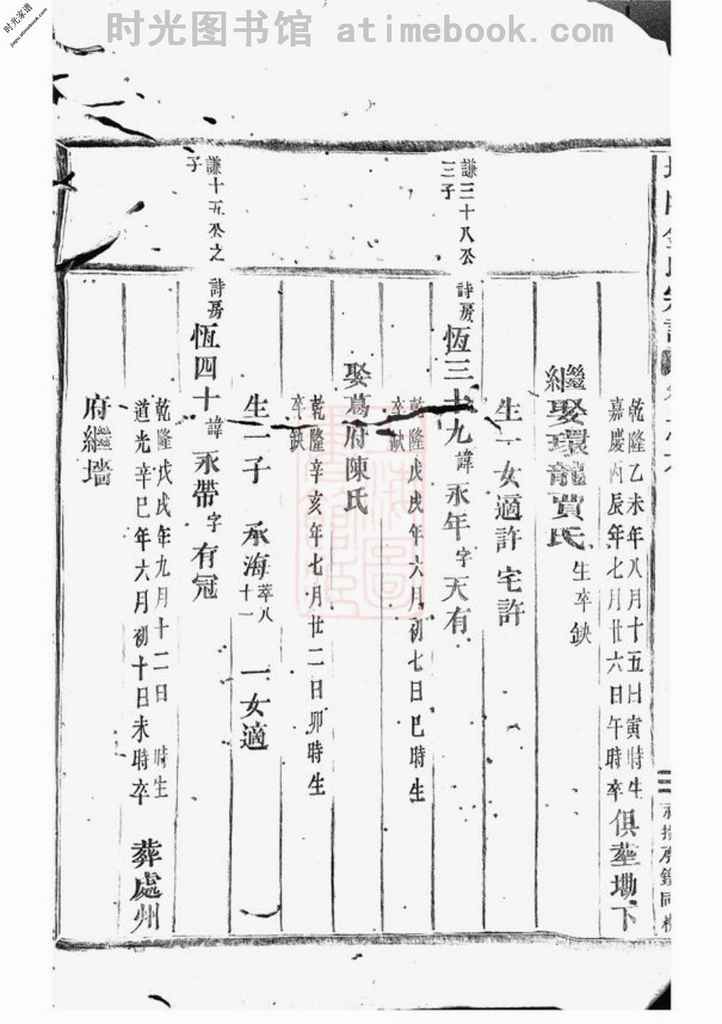 时光图书馆 atimebook.com
时光家谱
jiapu.atimebook.com
乾隆乙未年八月十五日寅時生
嘉慶丙辰年七月廿六日午時卒
俱塟墈下
繼娶環龍賈氏 生卒缺
生一女適許宅許
謙三十八公
三子
詩房 恆三十九 諱 永年 字 天有
乾隆戊戌年六月初七日巳時生
卒缺
娶葛府陳氏
乾隆辛亥年七月廿二日卯時生
卒缺
生一子 承海 莘八
十一
一女適
謙十五公之
子
詩房 恆四十 諱 永帶 字 有冠
乾隆戊戌年九月十二日 時生
道光辛巳年六月初十日未時卒
葬處州
府繼墻